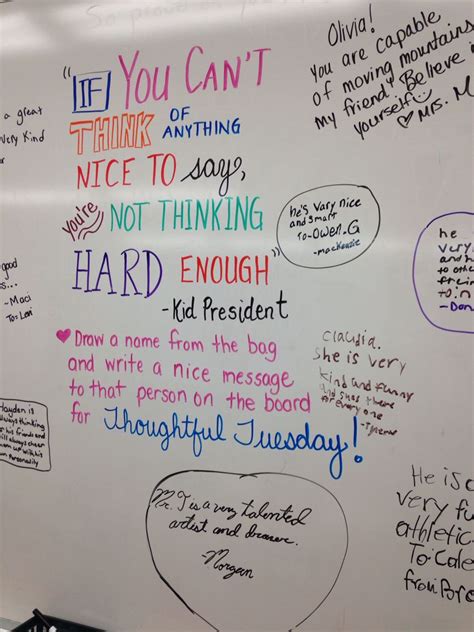 So proud of you
"IF YOU CAN'T
THINK OF ANYTHING
NICE TO say,
you're NOT THINKING
HARD ENOUGH"
-Kid President
♥ Draw a name from the bag
and write a nice message
to that person on the board
for Thoughtful Tuesday!
Olivia!
You are capable
of moving mountains
my friend! Believe in
yourself! ♡ Mrs. M
a great
Very Kind
or
he's vary nice
and smart
To-Owen.G
-mackenzie
he
very
and h
to othe
their
to in
-Dan
good
ss...
-Maci
To: Levi
claudia.
she is very
kind and funny
and shes there
for every one
Hayden is
always thinking
his friends and
will always cheer
up with his
own Personality
Mr. T is a very talented
artist and drawer.
-Morgan
He is
very fu
athletic
To-Cale
from Bro